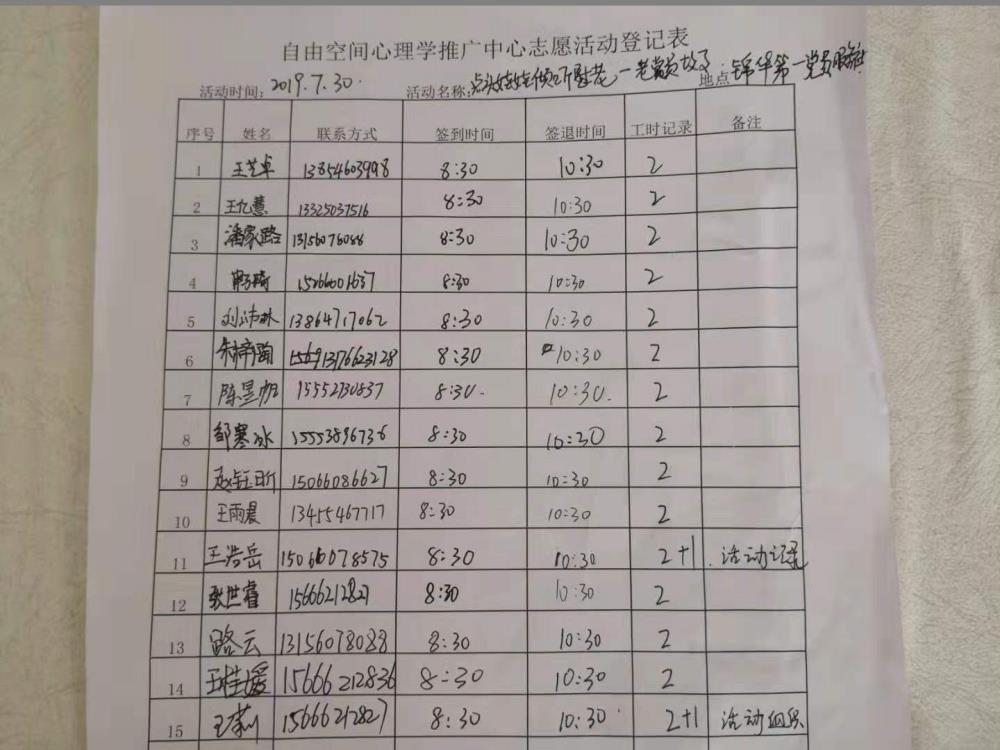 自由空间心理学推广中心志愿活动登记表
活动时间: 2019.7.30 活动名称: 一老党员故了 地点 锦华第一党员服务
序号 姓名 联系方式 签到时间 签退时间 工时记录 备注
1 王艺卓 13854603998 8:30 10:30 2
2 王九慧 13325037516 8:30 10:30 2
3 潘家路 13156076088 8:30 10:30 2
4 15266601637 8:30 10:30 2
5 刘沛林 13864717062 8:30 10:30 2
6 8:30 10:30 2
7 陈昱帆 15552730837 8:30. 10:30. 2
8 邹寒冰 15553896736 8:30 10:30 2
9 赵钰昕 15066086627 8:30 10:30 2
10 王雨晨 13455467717 8:30 10:30 2
11 王浩岳 15066078575 8:30 10:30 2+1 活动记录
12 张世睿 15666212827 8:30 10:30 2
13 路云 13156078088 8:30 10:30 2
14 王桂媛 15666212836 8:30 10:30 2
15 王莉 15666212827 8:30 10:30 2+1 活动组织